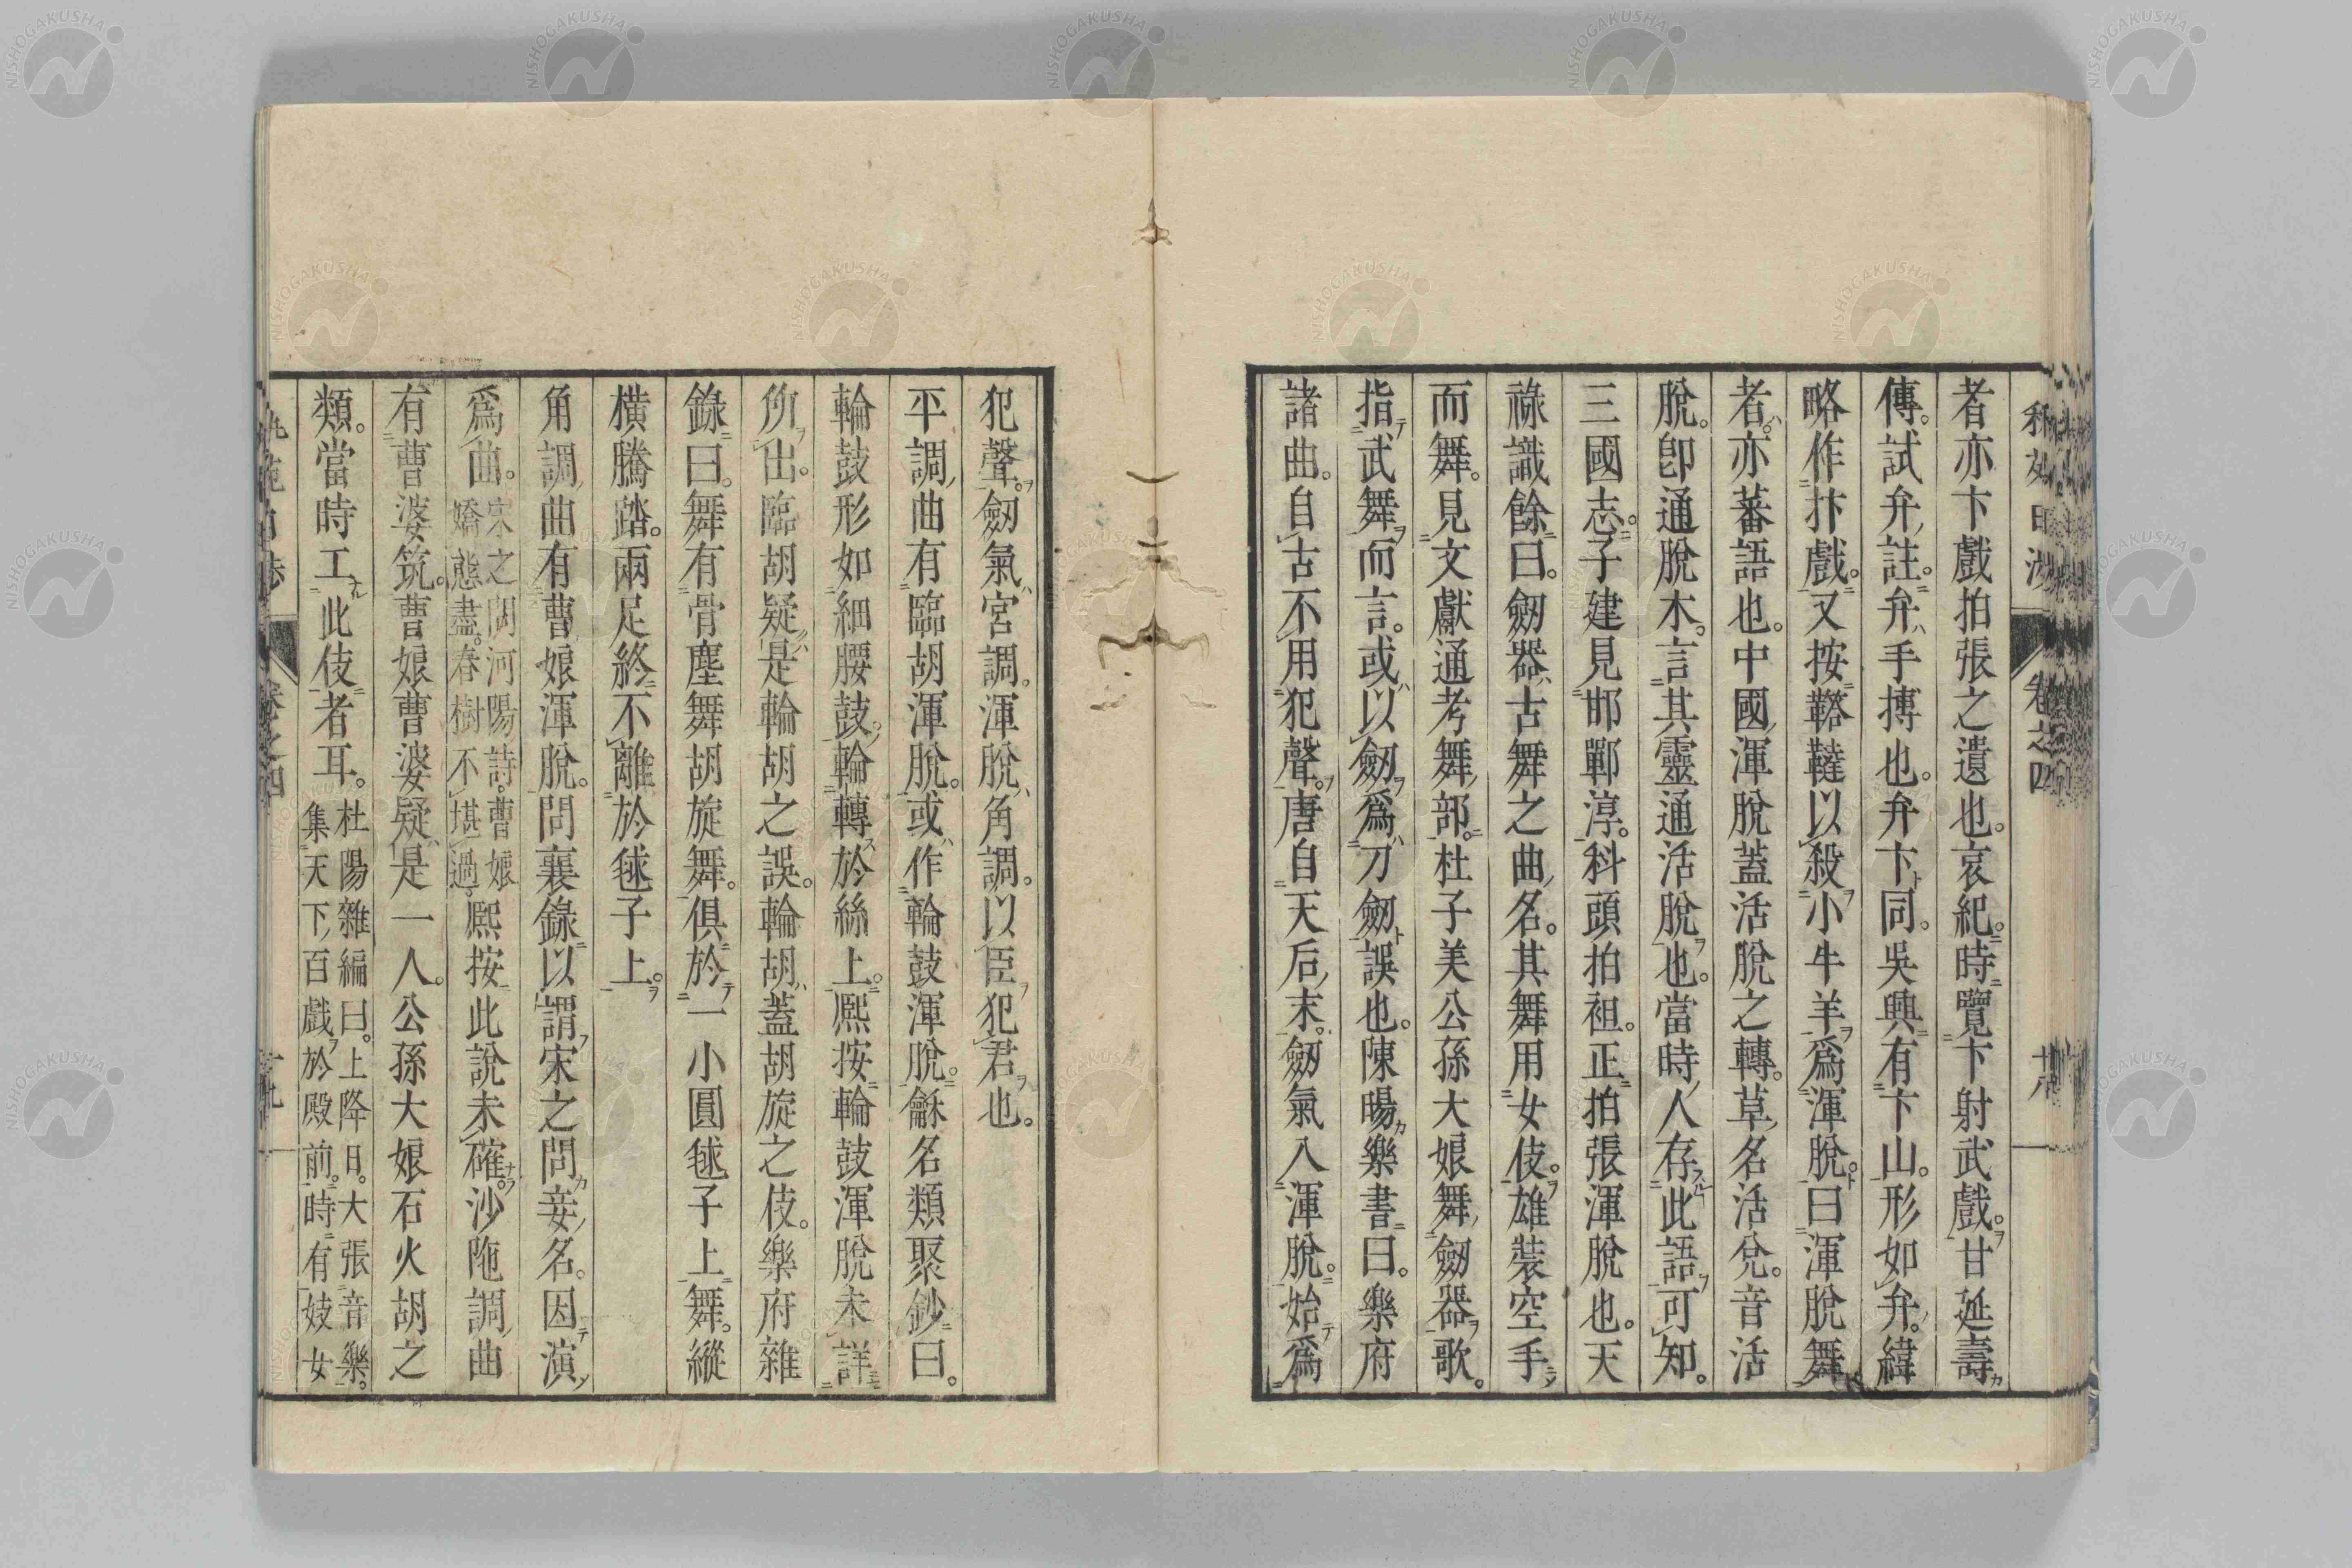 者亦卞戲拍張之遺也。哀紀。時覽卞射武戲。甘延壽
傳。試弁。註。弁手搏也。弁卞同。吳興有卞山。形如弁。緯
略作抃戲。又按鞳韃以殺小牛羊爲渾脫。曰渾脫舞
者。亦蕃語也。中國渾脫蓋活脫之轉。草名活兌。音活
脫。卽通脫木。言其靈通活脫也。當時人存此語可知。
三國志。子建見邯鄲淳。科頭拍袒。正拍張渾脫也。天
祿識餘曰。劒器古舞之曲名。其舞用女伎。雄裝空手
而舞。見文獻通考舞部。杜子美公孫大娘舞劒器歌。
指武舞而言。或以劒爲刀劒誤也。陳暘樂書曰。樂府
諸曲。自古不用犯聲。唐自天后末。劒氣入渾脫。始爲
犯聲。劒氣宮調。渾脫角調。以臣犯君也。
平調曲有臨胡渾脫。或作輪鼓渾脫。龢名類聚鈔曰。
輪鼓形如細腰鼓。輪轉於絲上。熈按輪鼓渾脫未詳
所出。臨胡疑是輪胡之誤。輪胡蓋胡旋之伎。樂府雜
錄曰。舞有骨塵舞胡旋舞。俱於一小圓毬子上舞。縱
橫騰踏。兩足終不離於毬子上。
角調曲有曹娘渾脫。問襄錄以謂宋之問妾名。因演
爲曲。宋之問河陽詩。曹娘嬌態盡。春樹不堪過。熈按此說未確。沙陁調曲
有曹婆筑。曹娘曹婆疑是一人。公孫大娘石火胡之
類。當時工此伎者耳。杜陽雜編曰。上降日。大張音樂。集天下百戲於殿前。時有妓女
卷之四